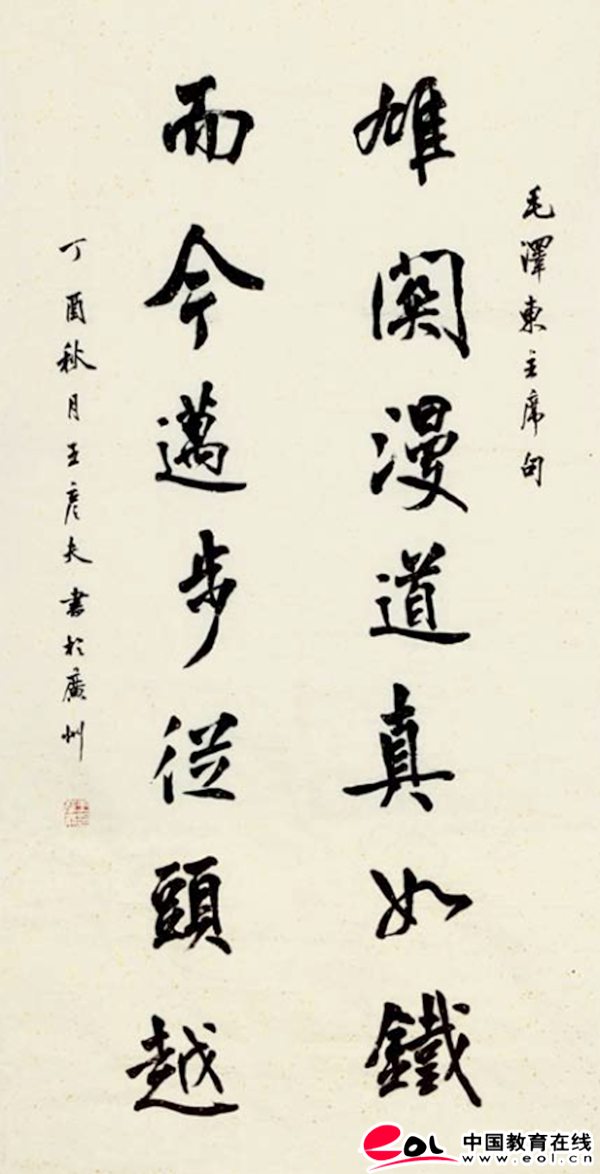 毛澤東主席句
雄關漫道真如鐵
而今邁步從頭越
丁酉秋月王彦夫書於廣州
eoL 中国教育在线
www.eol.cn